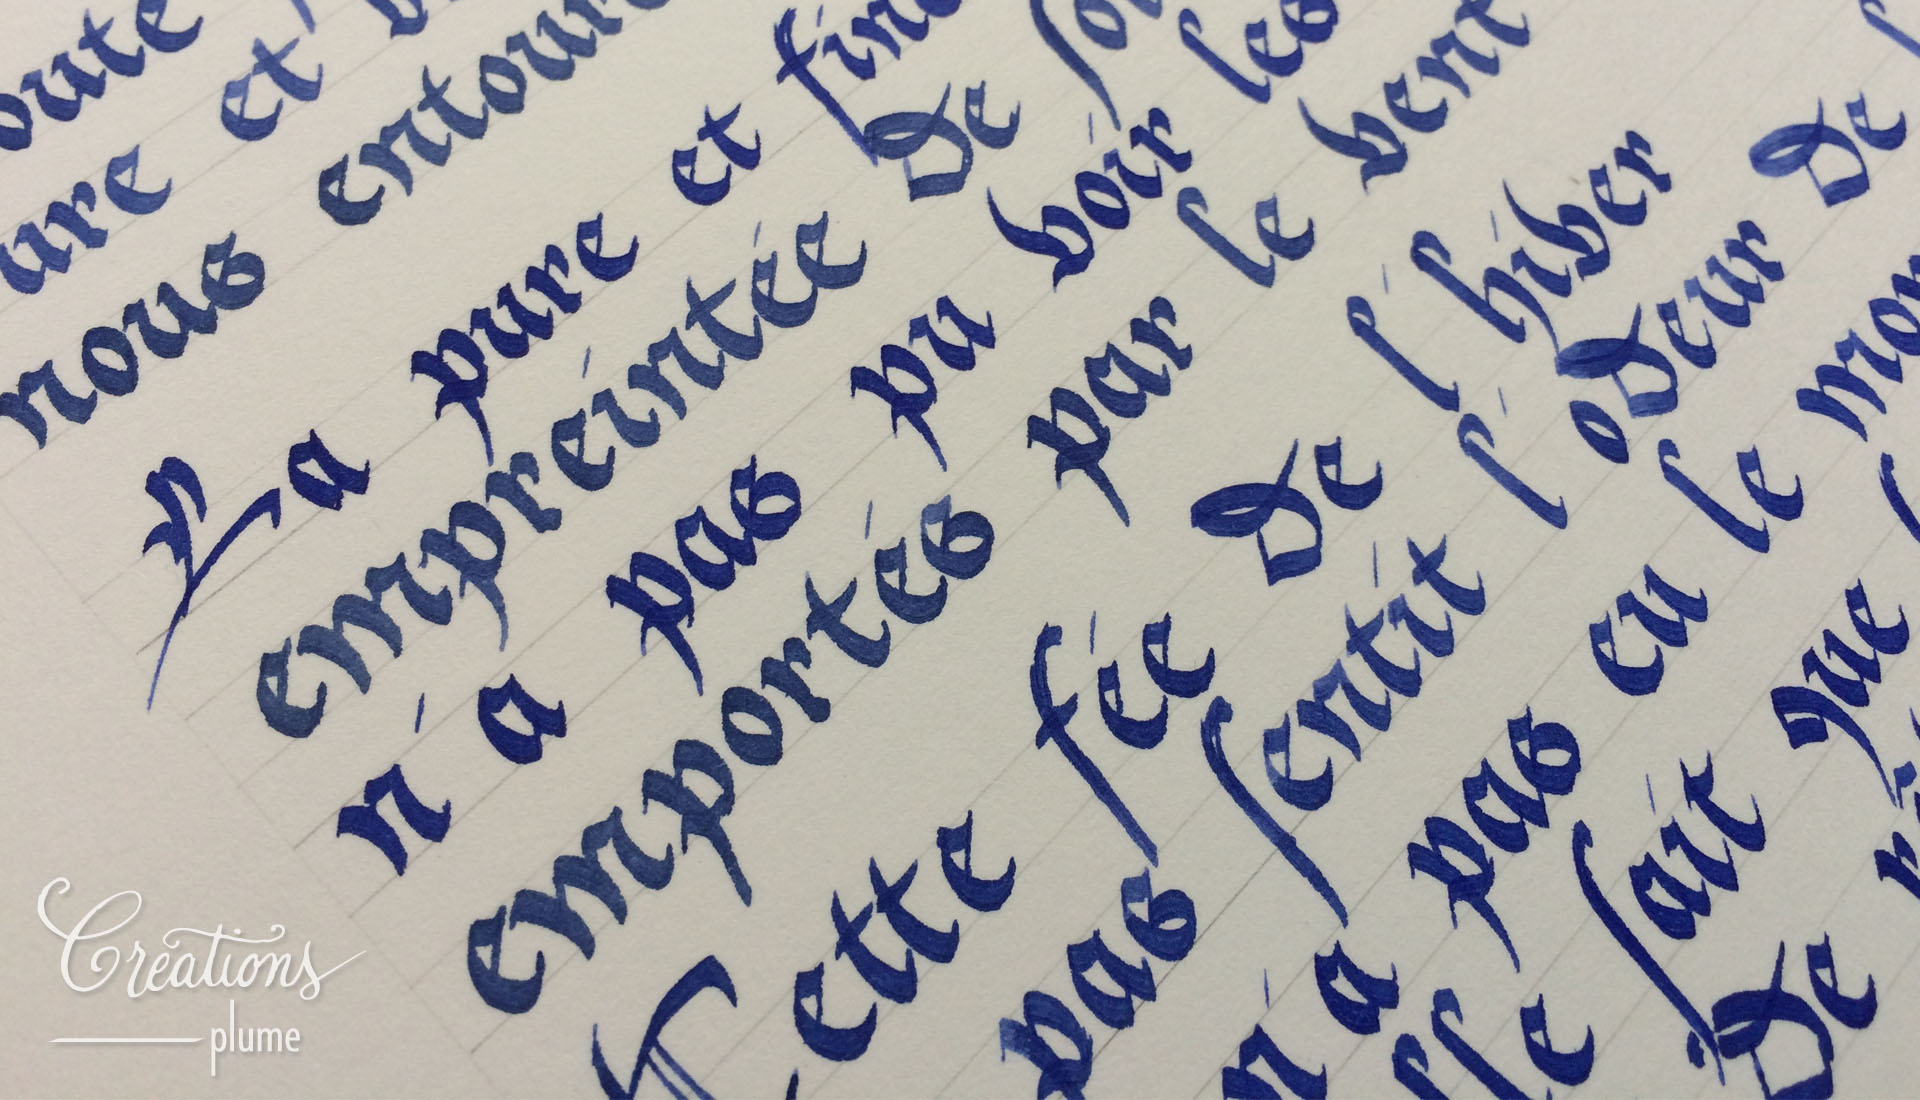 oute
ure et
nous entour
La pure et fin
empreintée De
n'a pas pu voir les
emportés par le vent
Cette fée De l'hiver
pas sentit l'oDeur De
n'a pas eu le mon
lle sait que
De
Créations
plume